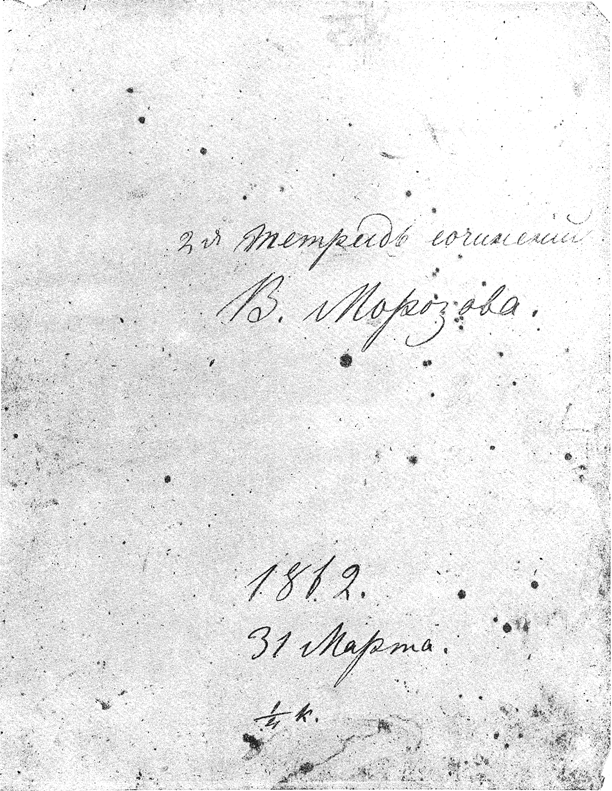 2я тетрадь сочинений
В. Морозова.
1862.
31 Марта.
¼ к.